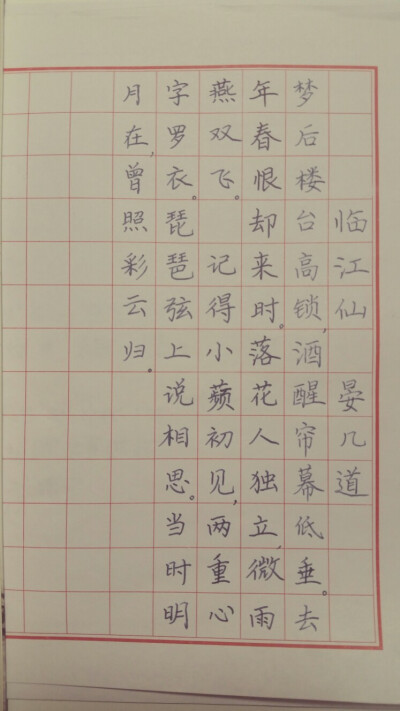 临江仙 晏几道
梦后楼台高锁,酒醒帘幕低垂。去
年春恨却来时。落花人独立,微雨
燕双飞。 记得小蘋初见,两重心
字罗衣。琵琶弦上说相思。当时明
月在,曾照彩云归。